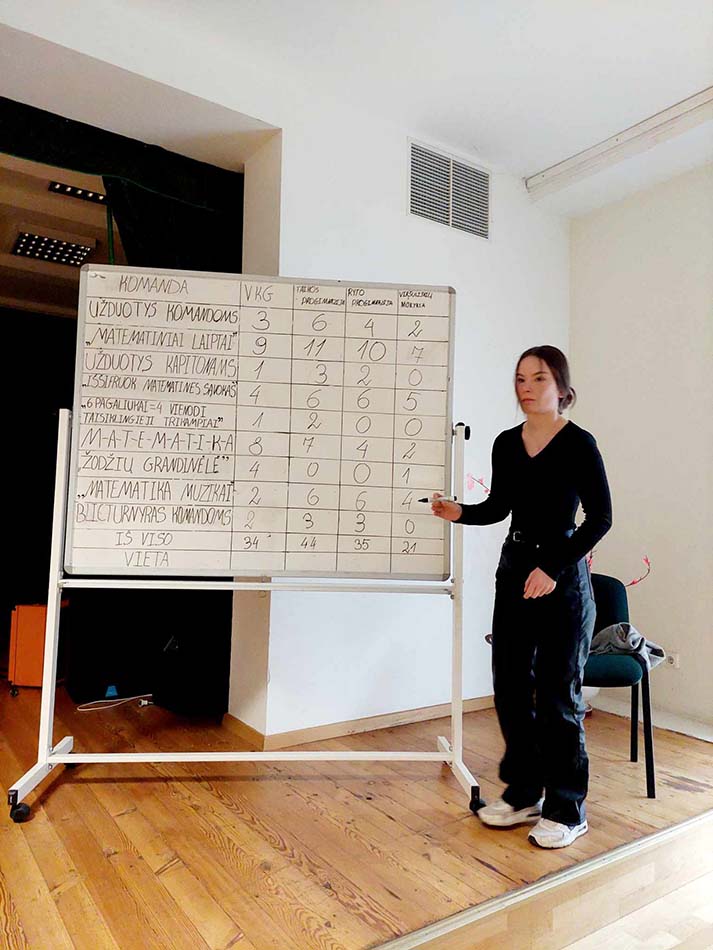 KOMANDA VKG TAIKOS PROGIMNAZIJA RYTO PROGIMNAZIJA VERSLININKŲ MOKYKLA
UŽDUOTYS KOMANDOMS 3 6 4 2
„MATEMATINIAI LAIPTAI" 9 11 10 7
UŽDUOTYS KAPITONAMS 1 3 2 0
„IŠSIFRUOK MATEMATINES SĄVOKAS" 4 6 6 5
„6 PAGALIUKAI = 4 VIENODI
TAISIKLINGIEJI TRIKAMPIAI" 1 2 0 0
M-A-T-E-M-A-T-I-K-A 8 7 4 2
„ŽODŽIŲ GRANDINĖLĖ" 4 0 0 1
„MATEMATIKA MUZIKAI" 2 6 6 4
BLICTURNYRAS KOMANDOMS 2 3 3 0
IŠ VISO 34 44 35 21
VIETA